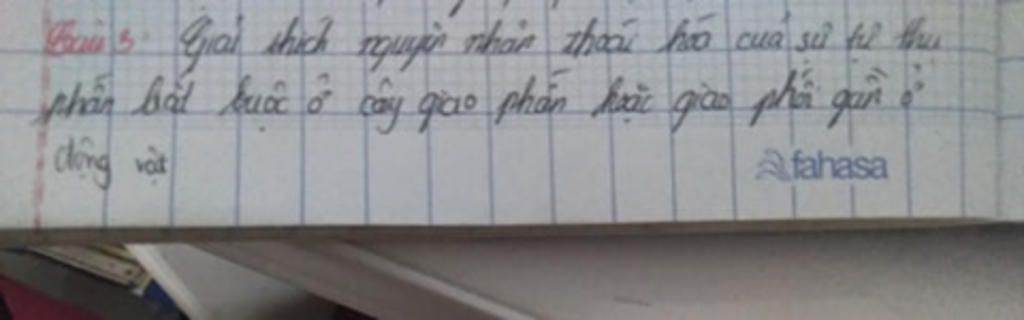 Câu 3: Giải thích nguyên nhân thoái hoá của sự tự thu
phấn bắt buộc ở cây giao phấn hoặc giao phối gần ở
động vật
fahasa